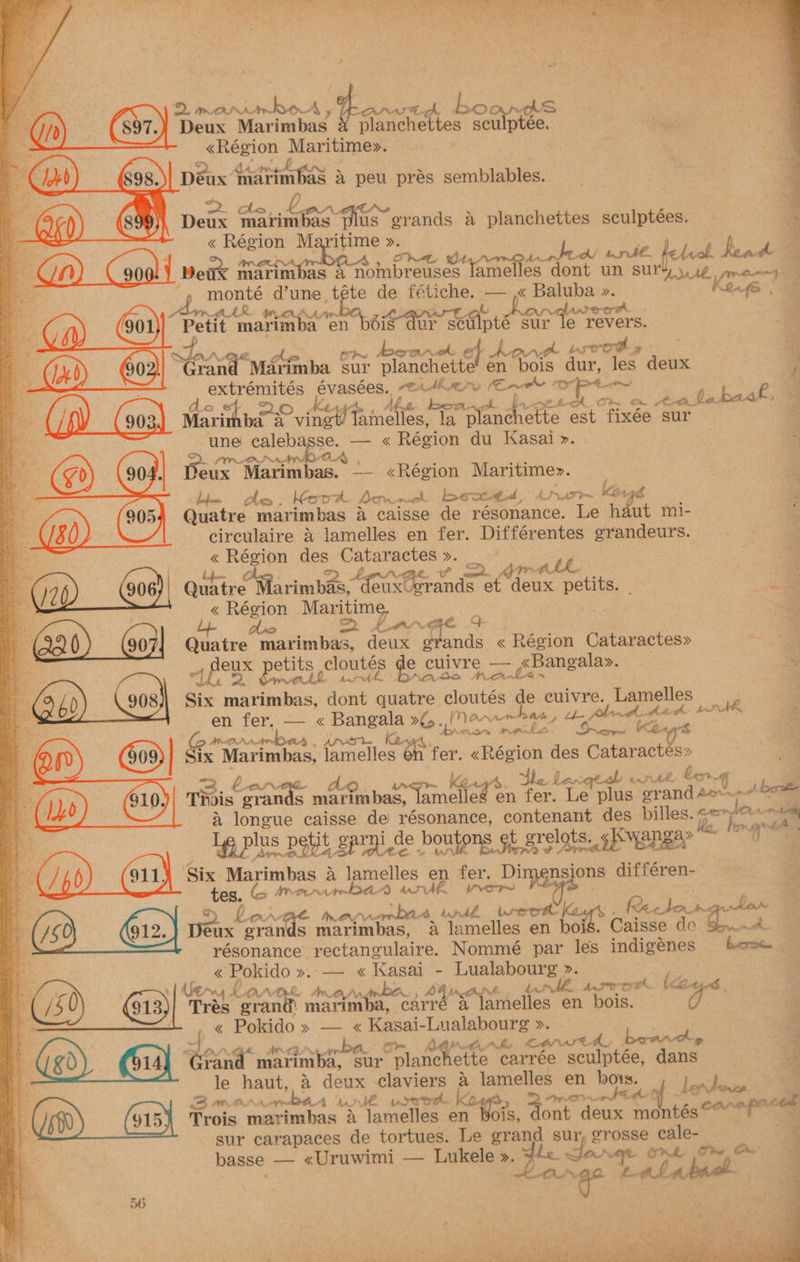 2 marimbas, carved boards
110 897. Deux Marimbas à planchettes sculptée.
«Région Maritime».
120 898. Deux marimbas à peu près semblables.
2 do large
899 Deux marimbas plus grands à planchettes sculptées.
« Région Maritime ».
900. Deux marimbas à nombreuses lamelles dont un sur-
monté d'une tête de fétiche. — « Baluba ».
small marimba hard wood
901 Petit marimba en bois dur sculpté sur le revers.
Large do on board of hard wood
120 902. Grand Marimba sur planchette en bois dur, les deux
extrémités évasées.
do of 20 Keys the board on a calabash.
903. Marimba à vingt lamelles, la planchette est fixée sur
une calebasse. — « Région du Kasai ».
2 marimbas
904. Deux Marimbas. — «Région Maritime».
180 905 Quatre marimbas à caisse de résonance. Le haut mi-
circulaire à lamelles en fer. Différentes grandeurs.
« Région des Cataractes ».
2 large & 2 small
120 906 Quatre Marimbas, deux grands et deux petits.
« Région Maritime.
do 2 large &
220 907 Quatre marimbas, deux grands « Région Cataractes»
deux petits cloutés de cuivre — «Bangala».
the 2 small with brass nails
260 908 Six marimbas, dont quatre cloutés de cuivre. Lamelles
en fer. — « Bangala » 6 marimbas,
6 marimbas, iron Keys
909 Six Marimbas, lamelles en fer. «Région des Cataractes»
3 large do iron Keys. the largest with long
120 910 Trois grands marimbas, lamelles en fer. Le plus grand sound box
à longue caisse de résonance, contenant des billes.
Le plus petit garni de boutons et grelots. «Kwanga»
160 911 Six Marimbas à lamelles en fer. Dimensions différen-
tes. 6 marimbas with iron Keys
2 large marimbas with wood Keys. Rectangular
150 912. Deux grands marimbas, à lamelles en bois. Caisse de
résonance rectangulaire. Nommé par les indigènes
« Pokido ». — « Kasai - Lualabourg ».
Very large marimba, square, with wood Keys.
150 913 Très grand marimba, carré à lamelles en bois.
« Pokido » — « Kasai-Lualabourg ».
Large marimba on square carved board,
180 914 Grand marimba, sur planchette carrée sculptée, dans
le haut, à deux claviers à lamelles en bois.
3 marimbas with wood Keys, 2 mounted on
915 Trois marimbas à lamelles en bois, dont deux montés
sur carapaces de tortues. Le grand sur, grosse cale-
basse — «Uruwimi — Lukele ». The large one on a
large calabash
56